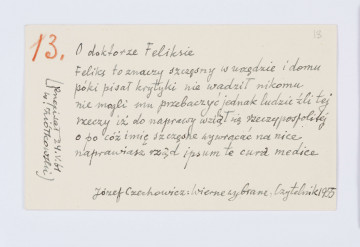 13.
13
O doktorze Feliksie
Feliks to znaczy szczęsny w urzędzie i domu
póki pisał krytyki nie wadził nikomu
nie mogli mu przebaczyć jednak ludzie źli tej
rzeczy iż do naprawy wziął się rzeczypospolitej
o po cóż imię szczęsne wywracać na nice
naprawiasz rząd ipsum te cura medice
Józef Czechowicz: Wiersze wybrane, Czytelnik 1955